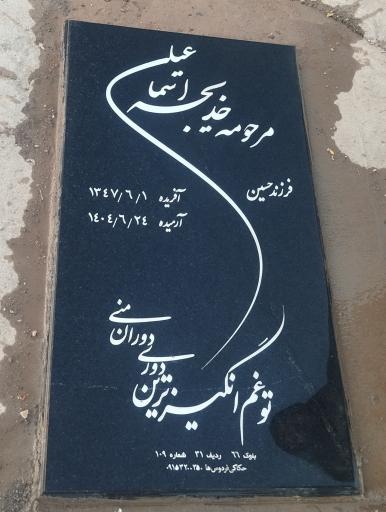 مرحومه خدیجه اسماعیلی
فرزند حسین
آفریده ۱۳۴۷/۶/۱
آرمیده ۱۴۰۴/۶/۲۴
تو غم انگیزترین دوری دوران منی
بلوک ۶۶ ردیف ۳۱ شماره ۱۰۹
حکاکی فردوس‌ها ۰۹۱۵۳۲۰۰۲۵۰